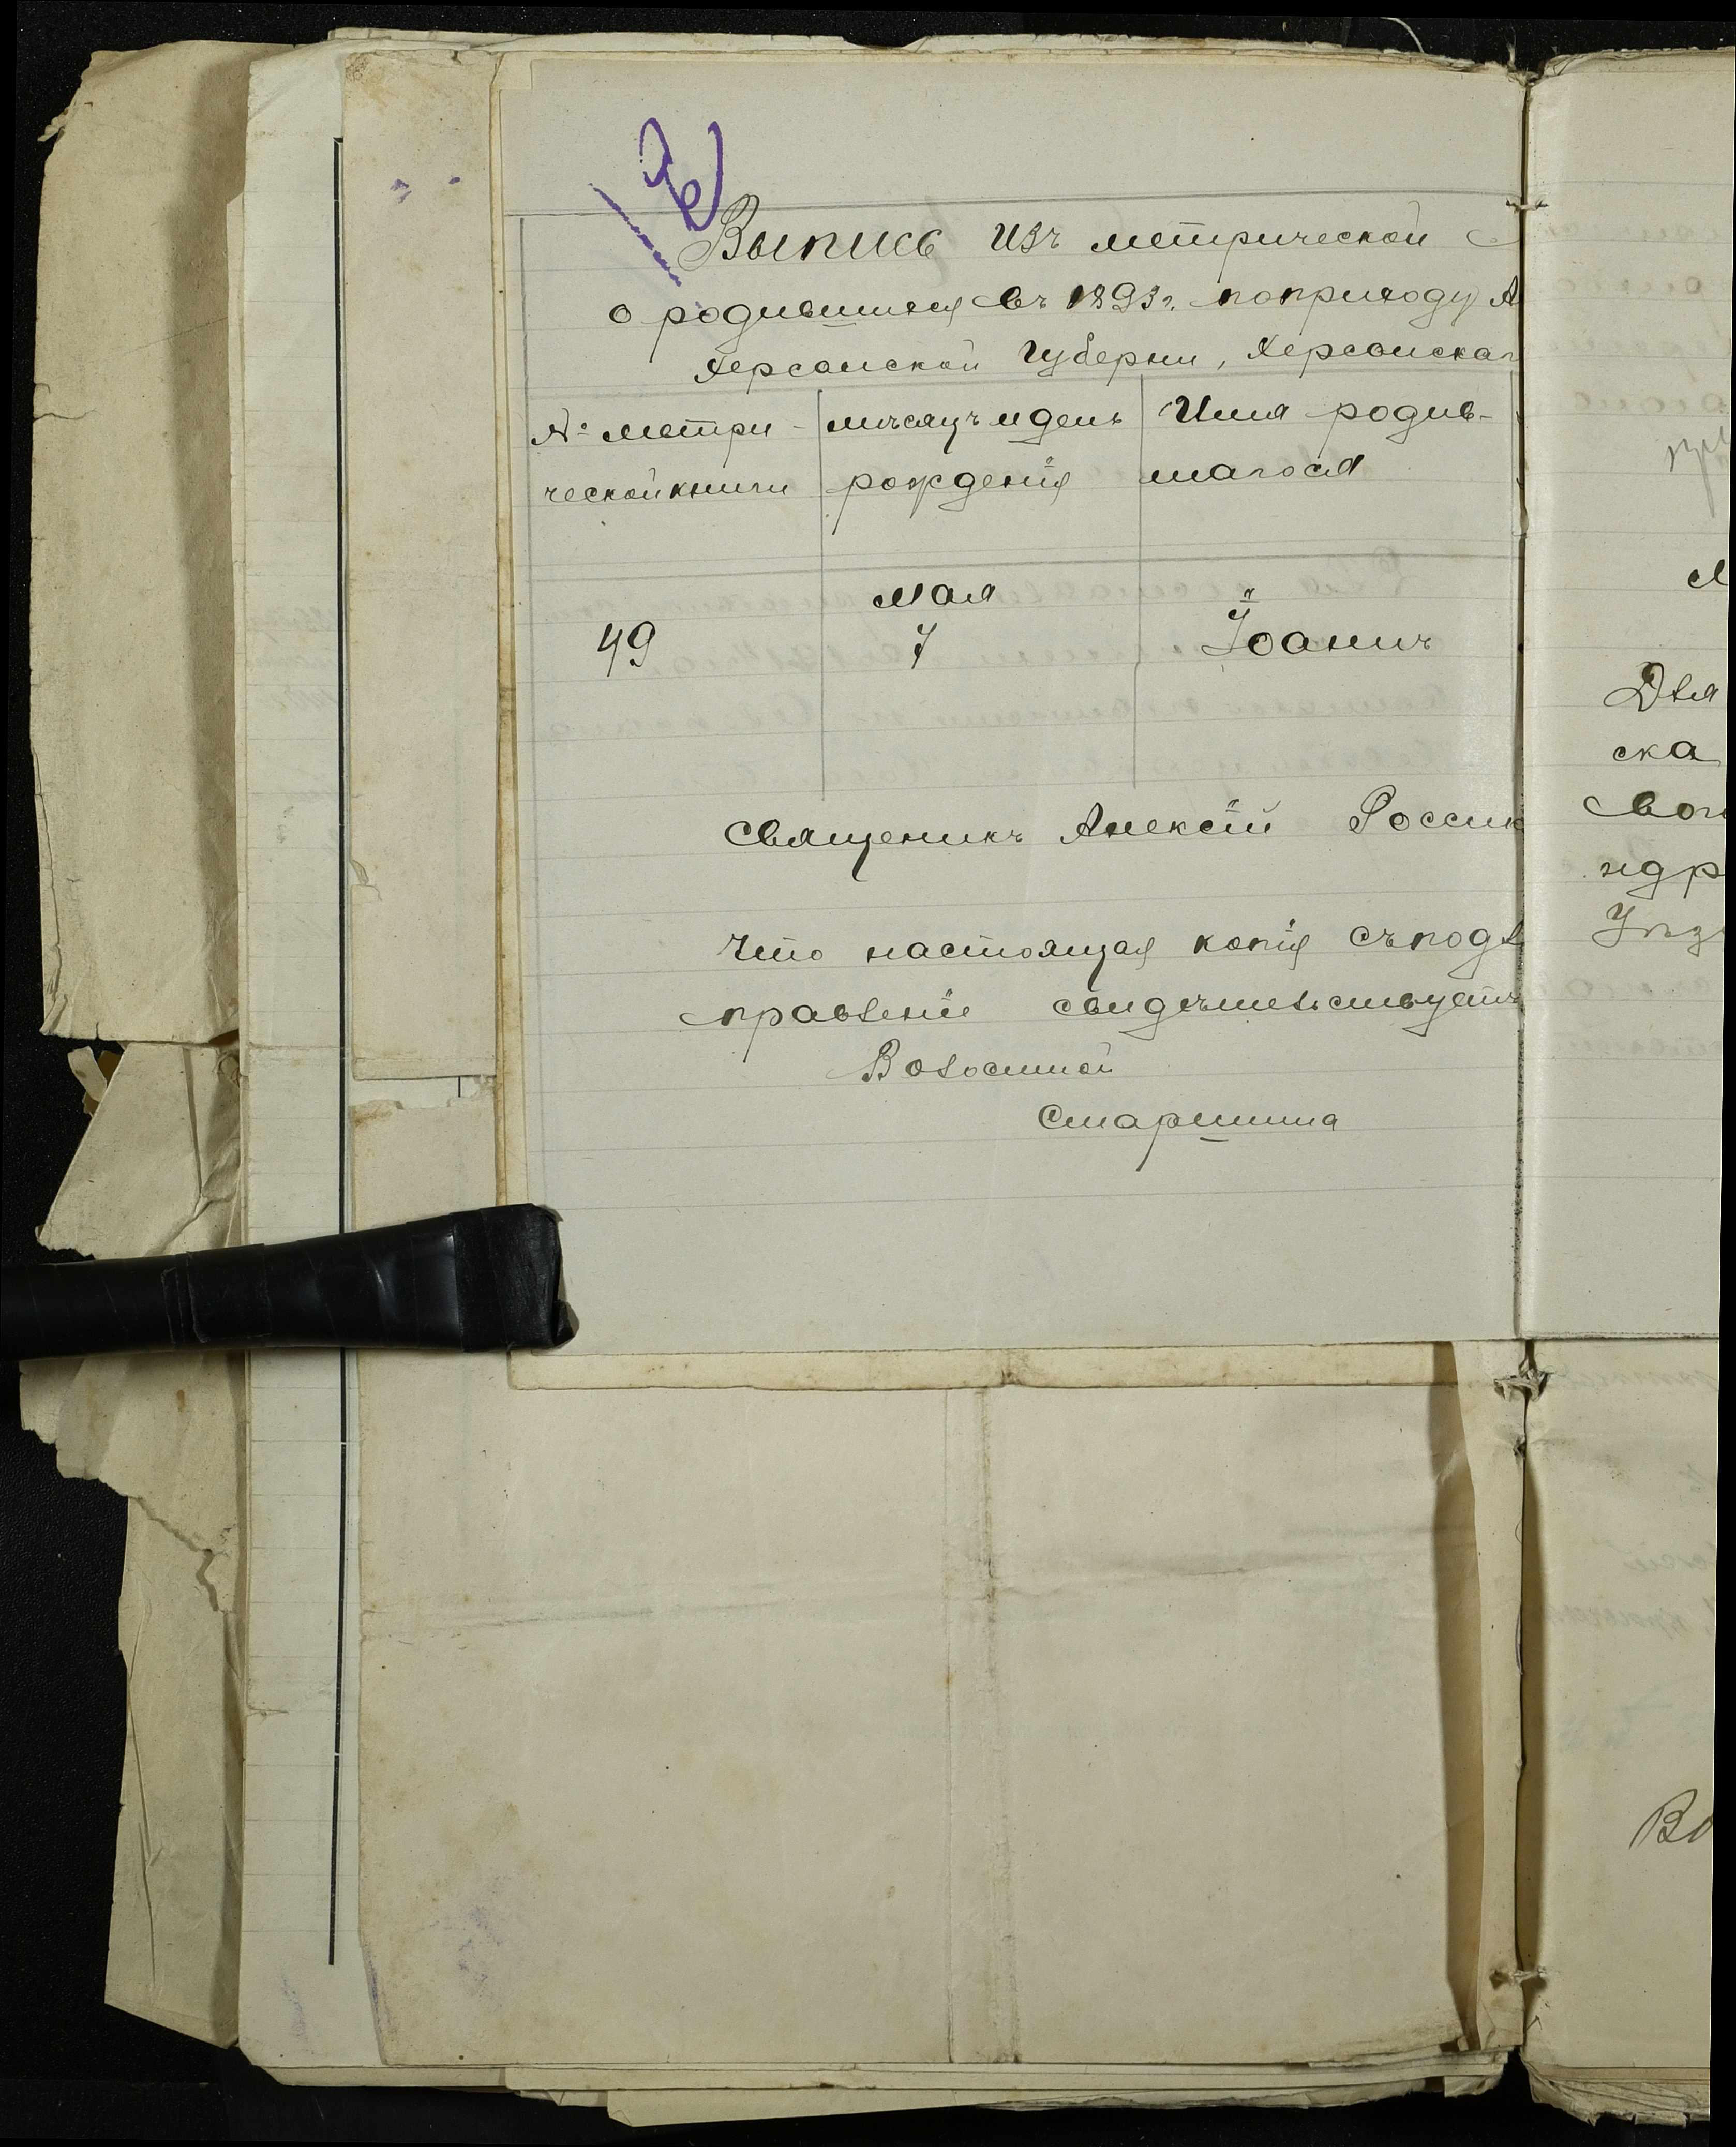 Выпись изъ метрической
о родившихся въ 1893 г. поприходу А
Херсонской Губерни, Херсонска
№ метри- мѣсяцъ и день Имя родив-
ческой книги рожденія шагося
49 Мая 7 Іоаннъ
Священикъ Алексій Россик
Что настоящая копія съ подл
правленіе свидѣтельствуетъ
Волосной
Старшина
Для
ска
ндр
Во